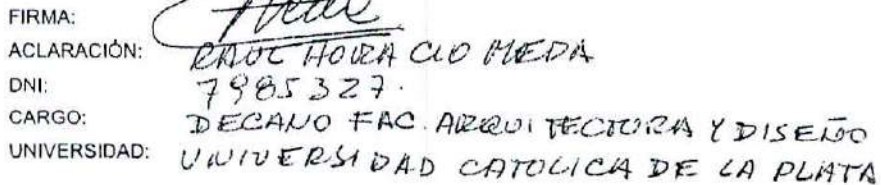 FIRMA:
ACLARACIÓN: RAUL HORACIO MEDA
DNI: 7985327.
CARGO: DECANO FAC. ARQUITECTURA Y DISEÑO
UNIVERSIDAD: UNIVERSIDAD CATOLICA DE LA PLATA